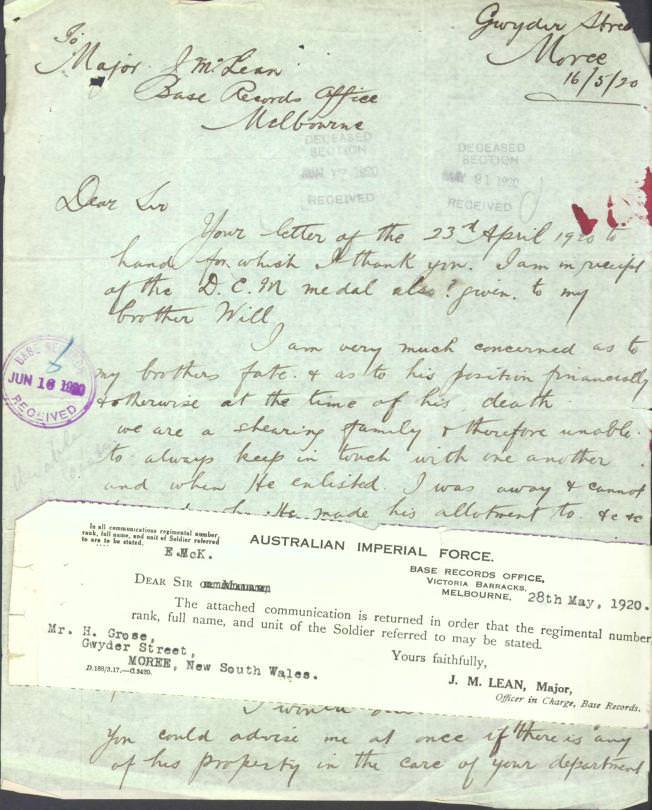 Gwyder Stree
Moree
16/5/20
To
Major J McLean
Base Records Office
Melbourne
DECEASED
SECTION
JUN 17 1920
RECEIVED
DECEASED
SECTION
MAY 21 1920
RECEIVED
Dear Sir
Your letter of the 23rd April 1920 to
hand for which I thank you. I am in receipt
of the D.C.M medal also? given. to my
brother Will
I am very much concerned as to
my brothers fate. & as to his position financially
& otherwise at the time of his death
we are a shearing family & therefore unable.
to always keep in touch with one another
and when He enlisted. I was away & cannot
He made his allotment to &c &c
BASE RECORDS
JUN 16 1920
RECEIVED
In all communications regimental number,
rank, full name, and unit of Soldier referred
to are to be stated.
E.McK.
AUSTRALIAN IMPERIAL FORCE.
BASE RECORDS OFFICE,
VICTORIA BARRACKS,
MELBOURNE, 28th May, 1920.
DEAR SIR
The attached communication is returned in order that the regimental number
rank, full name, and unit of the Soldier referred to may be stated.
Yours faithfully,
Mr. H. Grose,
Gwyder Street,
MOREE, New South Wales.
J. M. LEAN, Major,
Officer in Charge, Base Records.
D.189/3.17.—C.3420.
I would
You could advise me at once if there is any
of his property in the care of your department